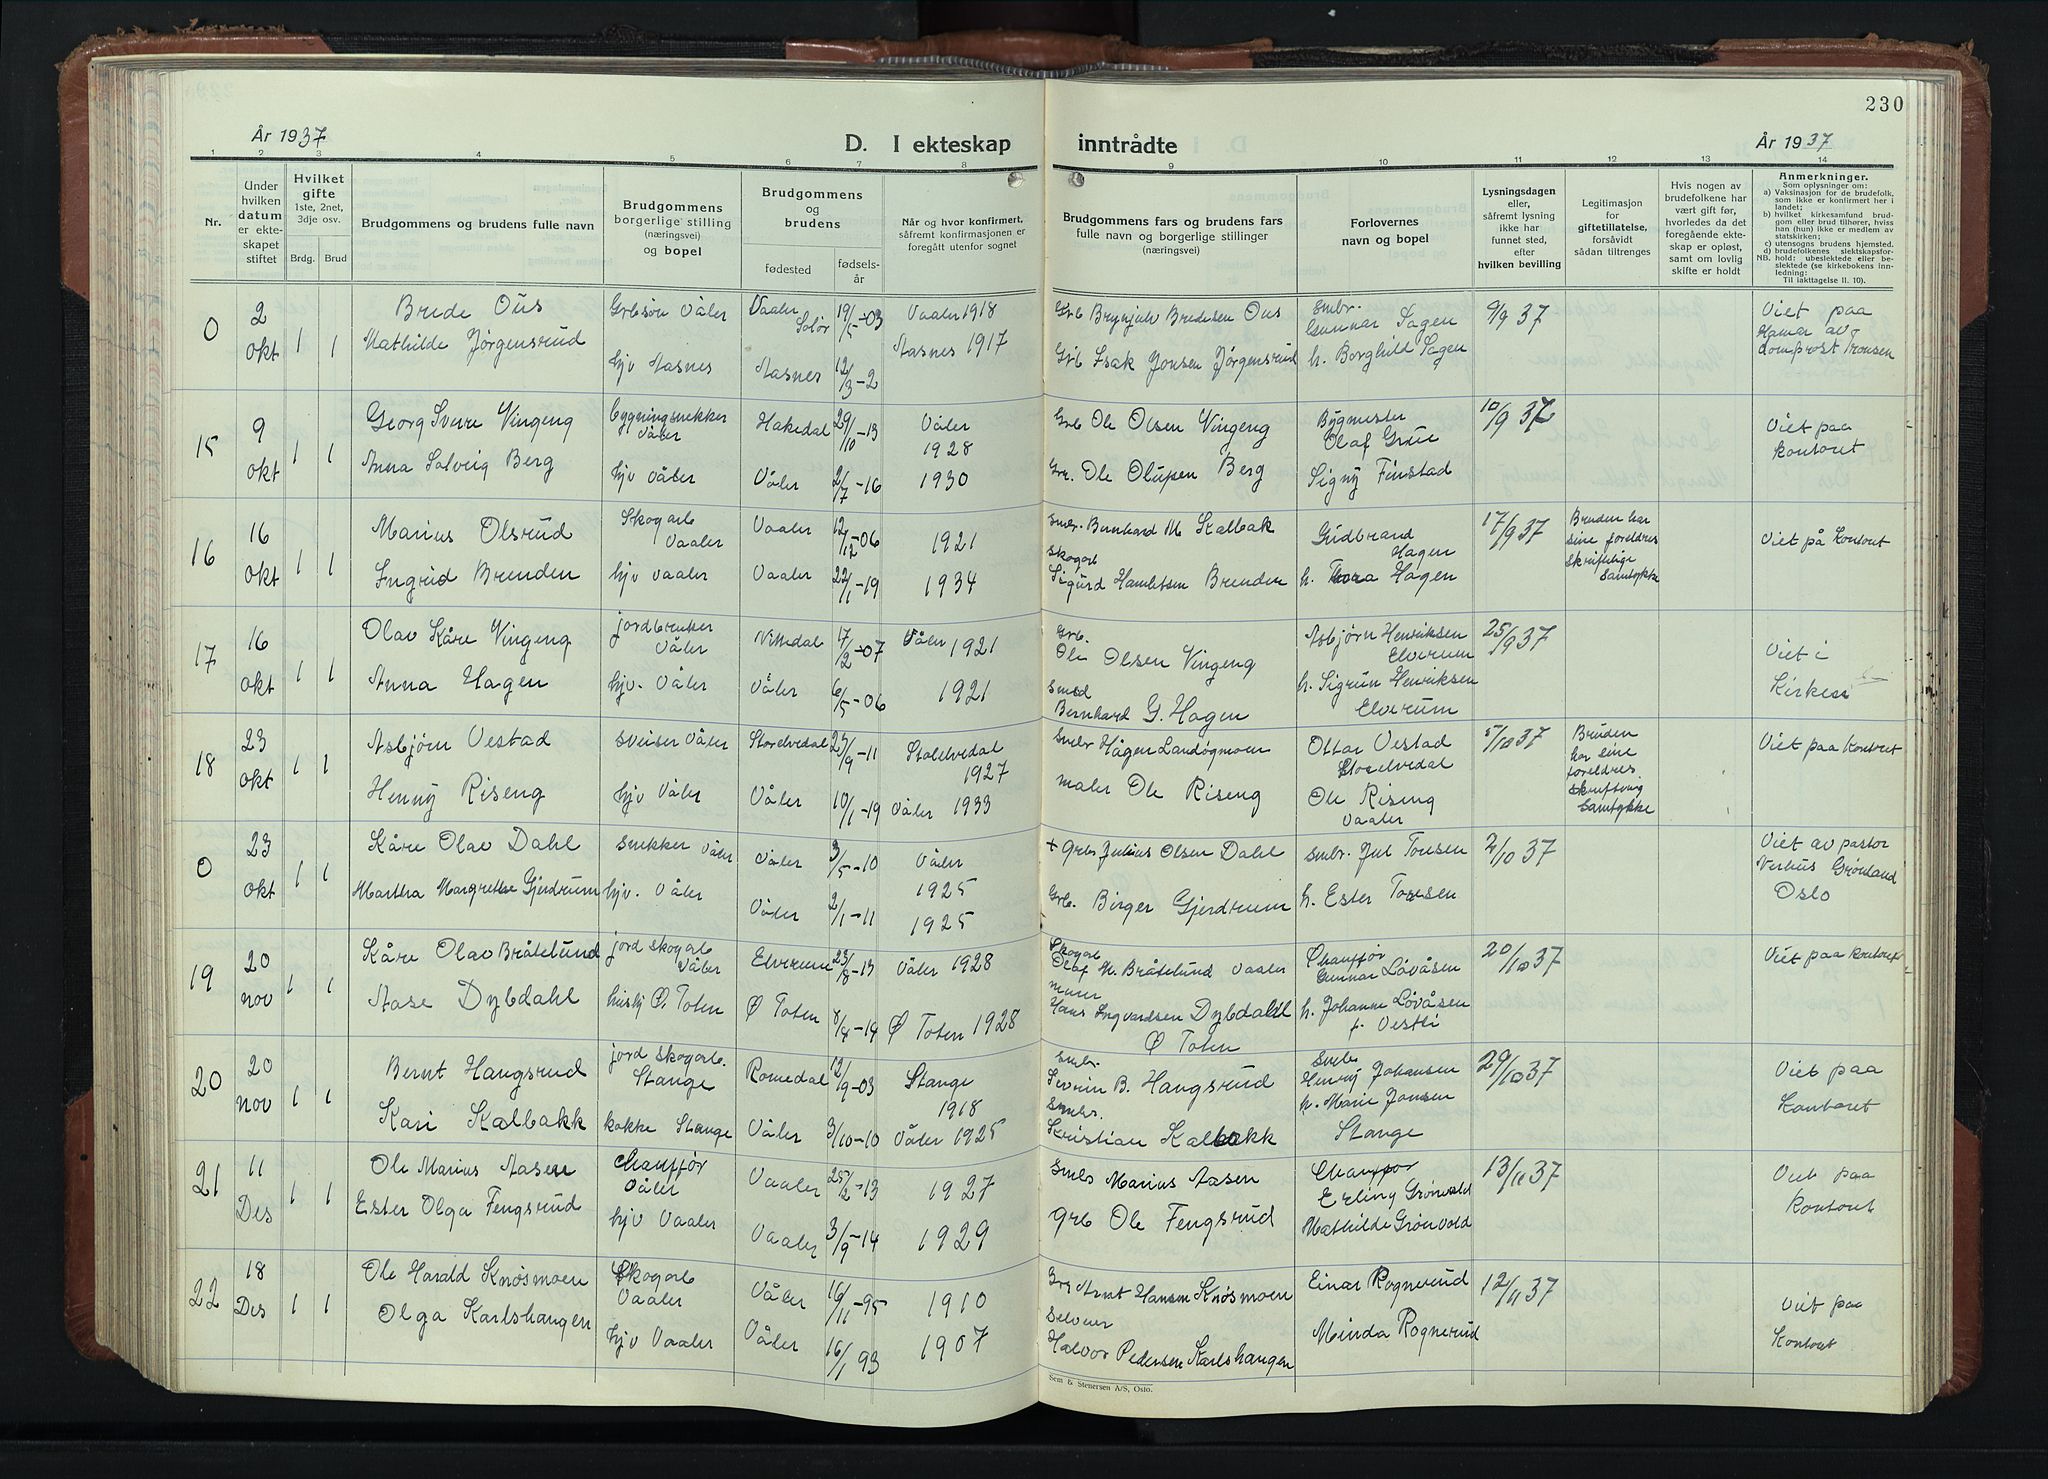 230
År 1937
D. I ekteskap
inntrådte
År 1937
1 2 3 4 5 6 7 8 9 10 11 12 13 14
Nr.
Under
hvilken
datum
er ekte-
skapet
stiftet
Hvilket
gifte
1ste, 2net,
3dje osv.
Brdg. Brud
Brudgommens og brudens fulle navn
Brudgommens
borgerlige stilling
(næringsvei)
og bopel
Brudgommens
og
brudens
fødested
fødsels-
år
Når og hvor konfirmert,
såfremt konfirmasjonen er
foregått utenfor sognet
Brudgommens fars og brudens fars
fulle navn og borgerlige stillinger
(næringsvei)
Forlovernes
navn og bopel
Lysningsdagen
eller,
såfremt lysning
ikke har
funnet sted,
efter
hvilken bevilling
Legitimasjon
for
giftetillatelse,
forsåvidt
sådan tiltrenges
Hvis nogen av
brudefolkene har
vært gift før,
hvorledes da det
foregående ekte-
skap er opløst,
samt om lovlig
skifte er holdt
Anmerkninger.
Som oplysninger om:
a) Vaksinasjon for de brudefolk,
som ikke er konfirmert her i
landet;
b) hvilket kirkesamfund brud-
gom eller brud tilhører, hvis
han (hun) ikke er medlem av
statskirken;
c) utensogns brudens hjemsted.
d) brudefolkenes slektskapsfor-
NB. hold: ubeslektede eller be-
slektede (se kirkebokens inn-
ledning:
Til iakttagelse II. 10).
0 2 okt 1 1
Brede Ous Grbsøn Våler Vaaler Solør 19/5-03 Vaaler 1918
Mathilde Jørgensrud hjv Aasnes Aasnes 12/3-2 Aasnes 1917
Grb Brynjulv Bredesen Ous
Grb Isak Jonsen Jørgensrud
Smbr. Gunnar Sagen
h. Borghild Sagen
9/9 37
Viet paa
Hamar av
domprost Tronsen
15 9 okt 1 1
Georg Sverre Vingeng bygningsnekker Våler Hakedal 29/10-13 Våler 1928
Anna Solveig Berg hjv Våler Våler 2/7-16 1930
Grb Ole Olsen Vingeng
Gr. Ole Olupen Berg
Bygmester
Olaf Grue
Signy Finstad
10/9 37
Viet paa
kontoret
16 16 okt 1 1
Marius Olsrud Skogarb Vaaler Vaaler 12/12-06 1921
Ingrid Brenden hjv Vaaler Vaaler 22/1-19 1934
Smbr. Bernhard M Kalbak
Skogarb
Sigurd Hamletsen Brenden
Gudbrand
Hagen
h. Thora Hagen
17/9 37
Bruden har
sine foreldres
skriftlige
Samtykke
Viet på Kontoret
17 16 okt 1 1
Olav Kåre Vingeng jordbruker Våler Nittedal 17/2-07 Våler 1921
Anna Hagen hjv. Våler Våler 6/5-06 1921
Grb.
Ole Olsen Vingeng
Smed
Bernhard G. Hagen
Asbjørn Henriksen
Elverum
h. Sigrun Henriksen
Elverum
25/9 37
Viet i
Kirken
18 23 okt 1 1
Asbjørn Vestad sveiser Våler Storelvedal 23/9-11 Storelvedal 1927
Henny Riseng hjv Våler Våler 10/1-19 Våler 1933
Smbr Hågen Landögmoen
maler Ole Riseng
Ottar Vestad
Storelvedal
Ole Riseng
Vaaler
5/10 37
Bruden
har sine
foreldres
skriftlig
Samtykke
Viet paa kontoret
0 23 okt 1 1
Kåre Olav Dahl snekker Våler Våler 3/5-10 Våler 1925
Martha Margrethe Gjerdrum hjv. Våler Våler 2/1-11 1925
+ grb Julius Olsen Dahl
Grb. Birger Gjerdrum
Smbr. Jul Toresen
h. Ester Toresen
2/10 37
Viet av pastor
Verhus Grønland
Oslo
19 20 nov 1 1
Kåre Olav Bråtelund jord skogarb Våler Elverum 23/8-13 Våler 1928
Aase Dybdahl hushj Ø. Toten Ø Toten 8/4-14 Ø Toten 1928
Skogarb
Olaf M. Bråtelund Vaaler
murer
Hans Ingvardsen Dybdahl
Ø Toten
Chauffør
Gunnar Løvåsen
h. Johanne Løvåsen
f. Vestli
20/10 37
Viet paa kontoret
20 20 nov 1 1
Bernt Haugsrud jord skogarb. Stange Romedal 12/9-03 Stange 1918
Kari Kalbakk kokke Stange Våler 3/10-10 Våler 1925
Smbr.
Severin B. Haugsrud
Smbr.
Kristian Kalbakk
Smbr
Henry Johansen
h. Marie Jonsen
Stange
29/10 37
Viet paa
Kontoret
21 11 Des 1 1
Ole Marius Aasen Chauffør Våler Vaaler 25/2-13 1927
Ester Olga Fengsrud hjv Vaaler Vaaler 3/9-14 1929
Smbr Marius Aasen
Grb Ole Fengsrud
Chauffør
Erling Grønvold
Mathilde Grønvold
13/11 37
Viet paa
kontoret
22 18 Des 1 1
Ole Harald Knøsmoen Skogarb Vaaler Våler 16/11-95 1910
Olga Karlshaugen hjv Vaaler Våler 16/1 93 1907
Grb Arnt Hansen Knøsmoen
Selveier
Halvor Pedersen Karlshaugen
Einar Rognerud
Minda Rognerud
12/11 37
Viet paa
Kontoret
Sem & Stenersen A/S, Oslo.